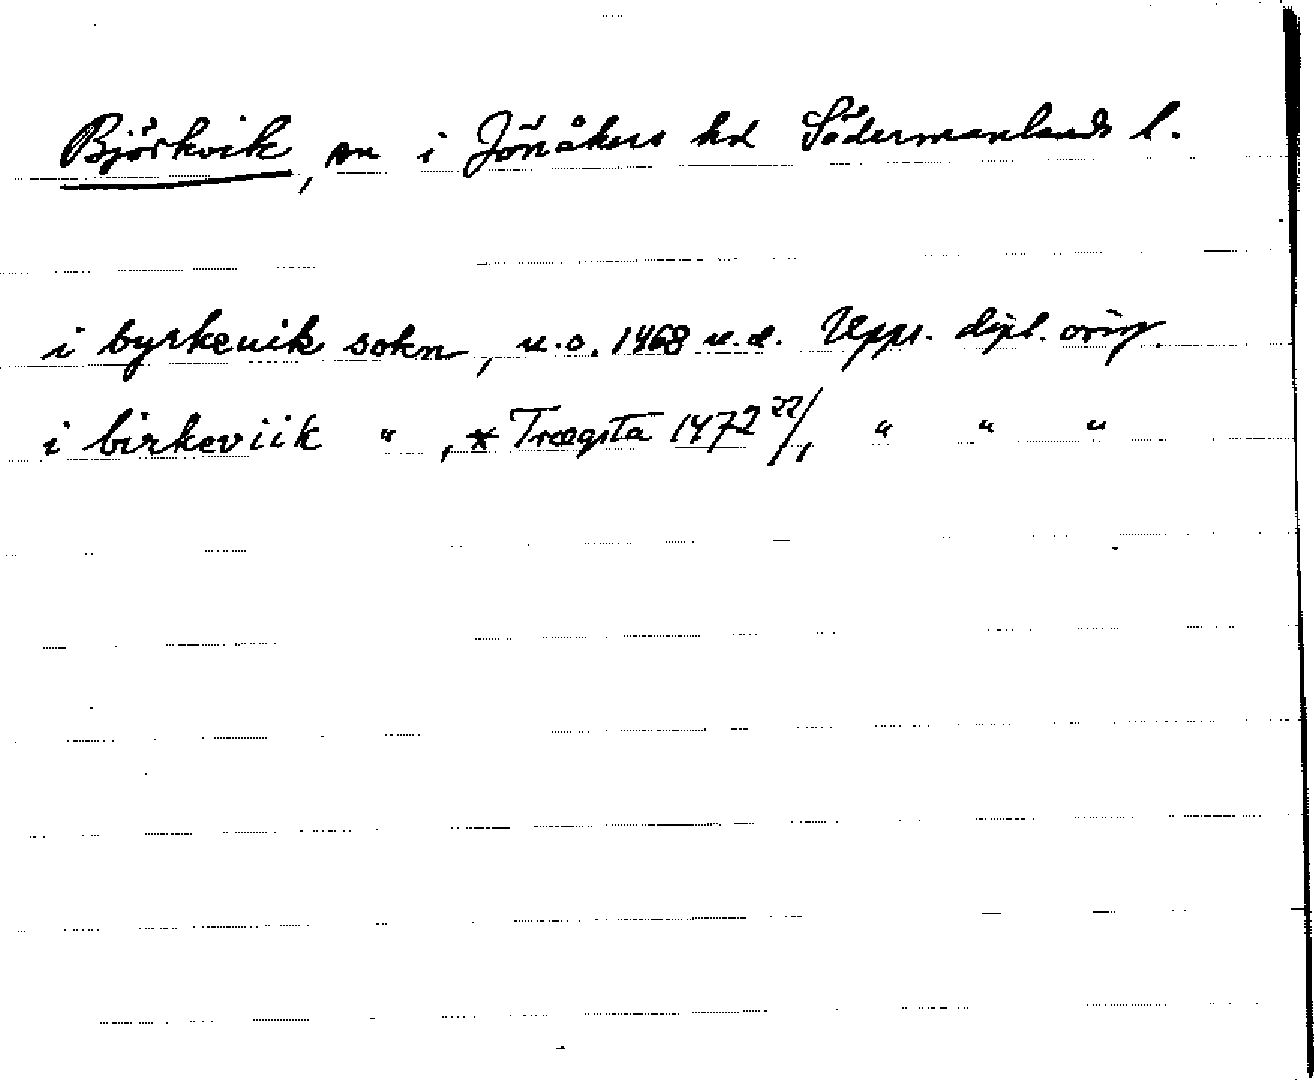 Björkvik, sn i Jönåkers hd Södermanlands l.
i byrkeuik sokn, u.o. 1468 u.d. Upps. dipl. orig.
i birkeviik " , * Trægsta 1472 22/1 " " "